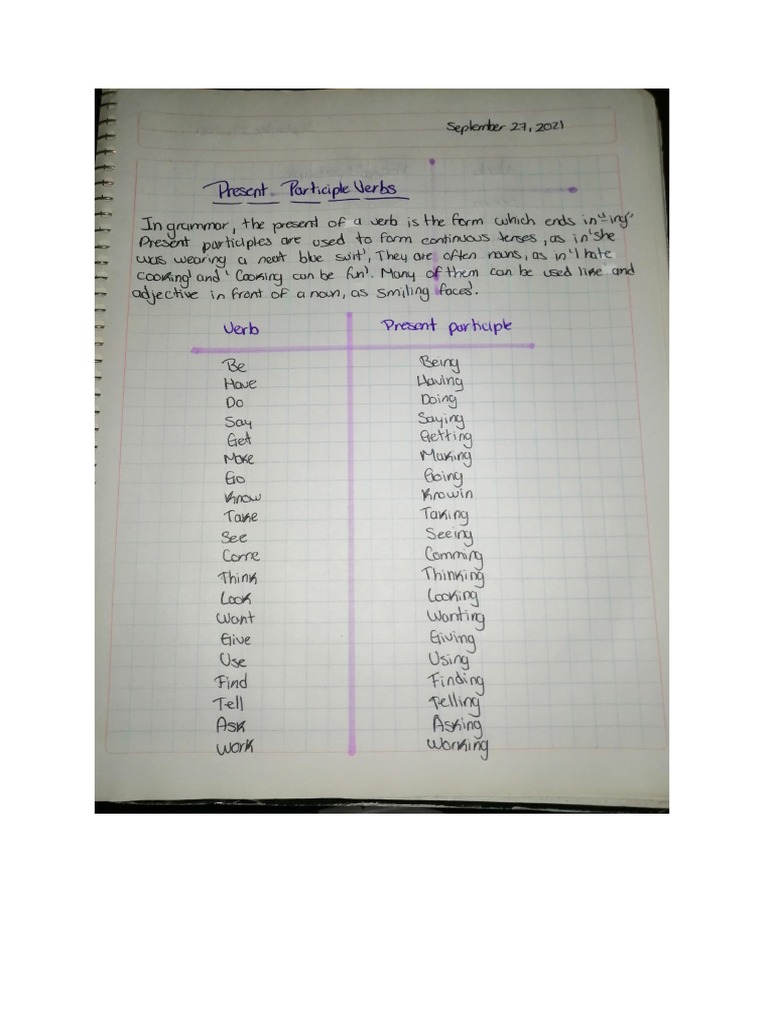 September 27, 2021
Present Participle Verbs
In grammar, the present of a verb is the form which ends in "-ing"
Present participles are used to form continuous tenses, as in 'she
was wearing a neat blue suit', They are often nouns, as in 'I hate
cooking' and 'Cooking can be fun'. Many of them can be used like and
adjective in front of a noun, as smiling faces'.
Verb Present participle
Be Being
Have Having
Do Doing
Say Saying
Get Getting
Make Making
Go Going
Know Knowin
Take Taking
See Seeing
Come Comming
Think Thinking
Look Looking
Want Wanting
Give Giving
Use Using
Find Finding
Tell Telling
Ask Asking
Work Working